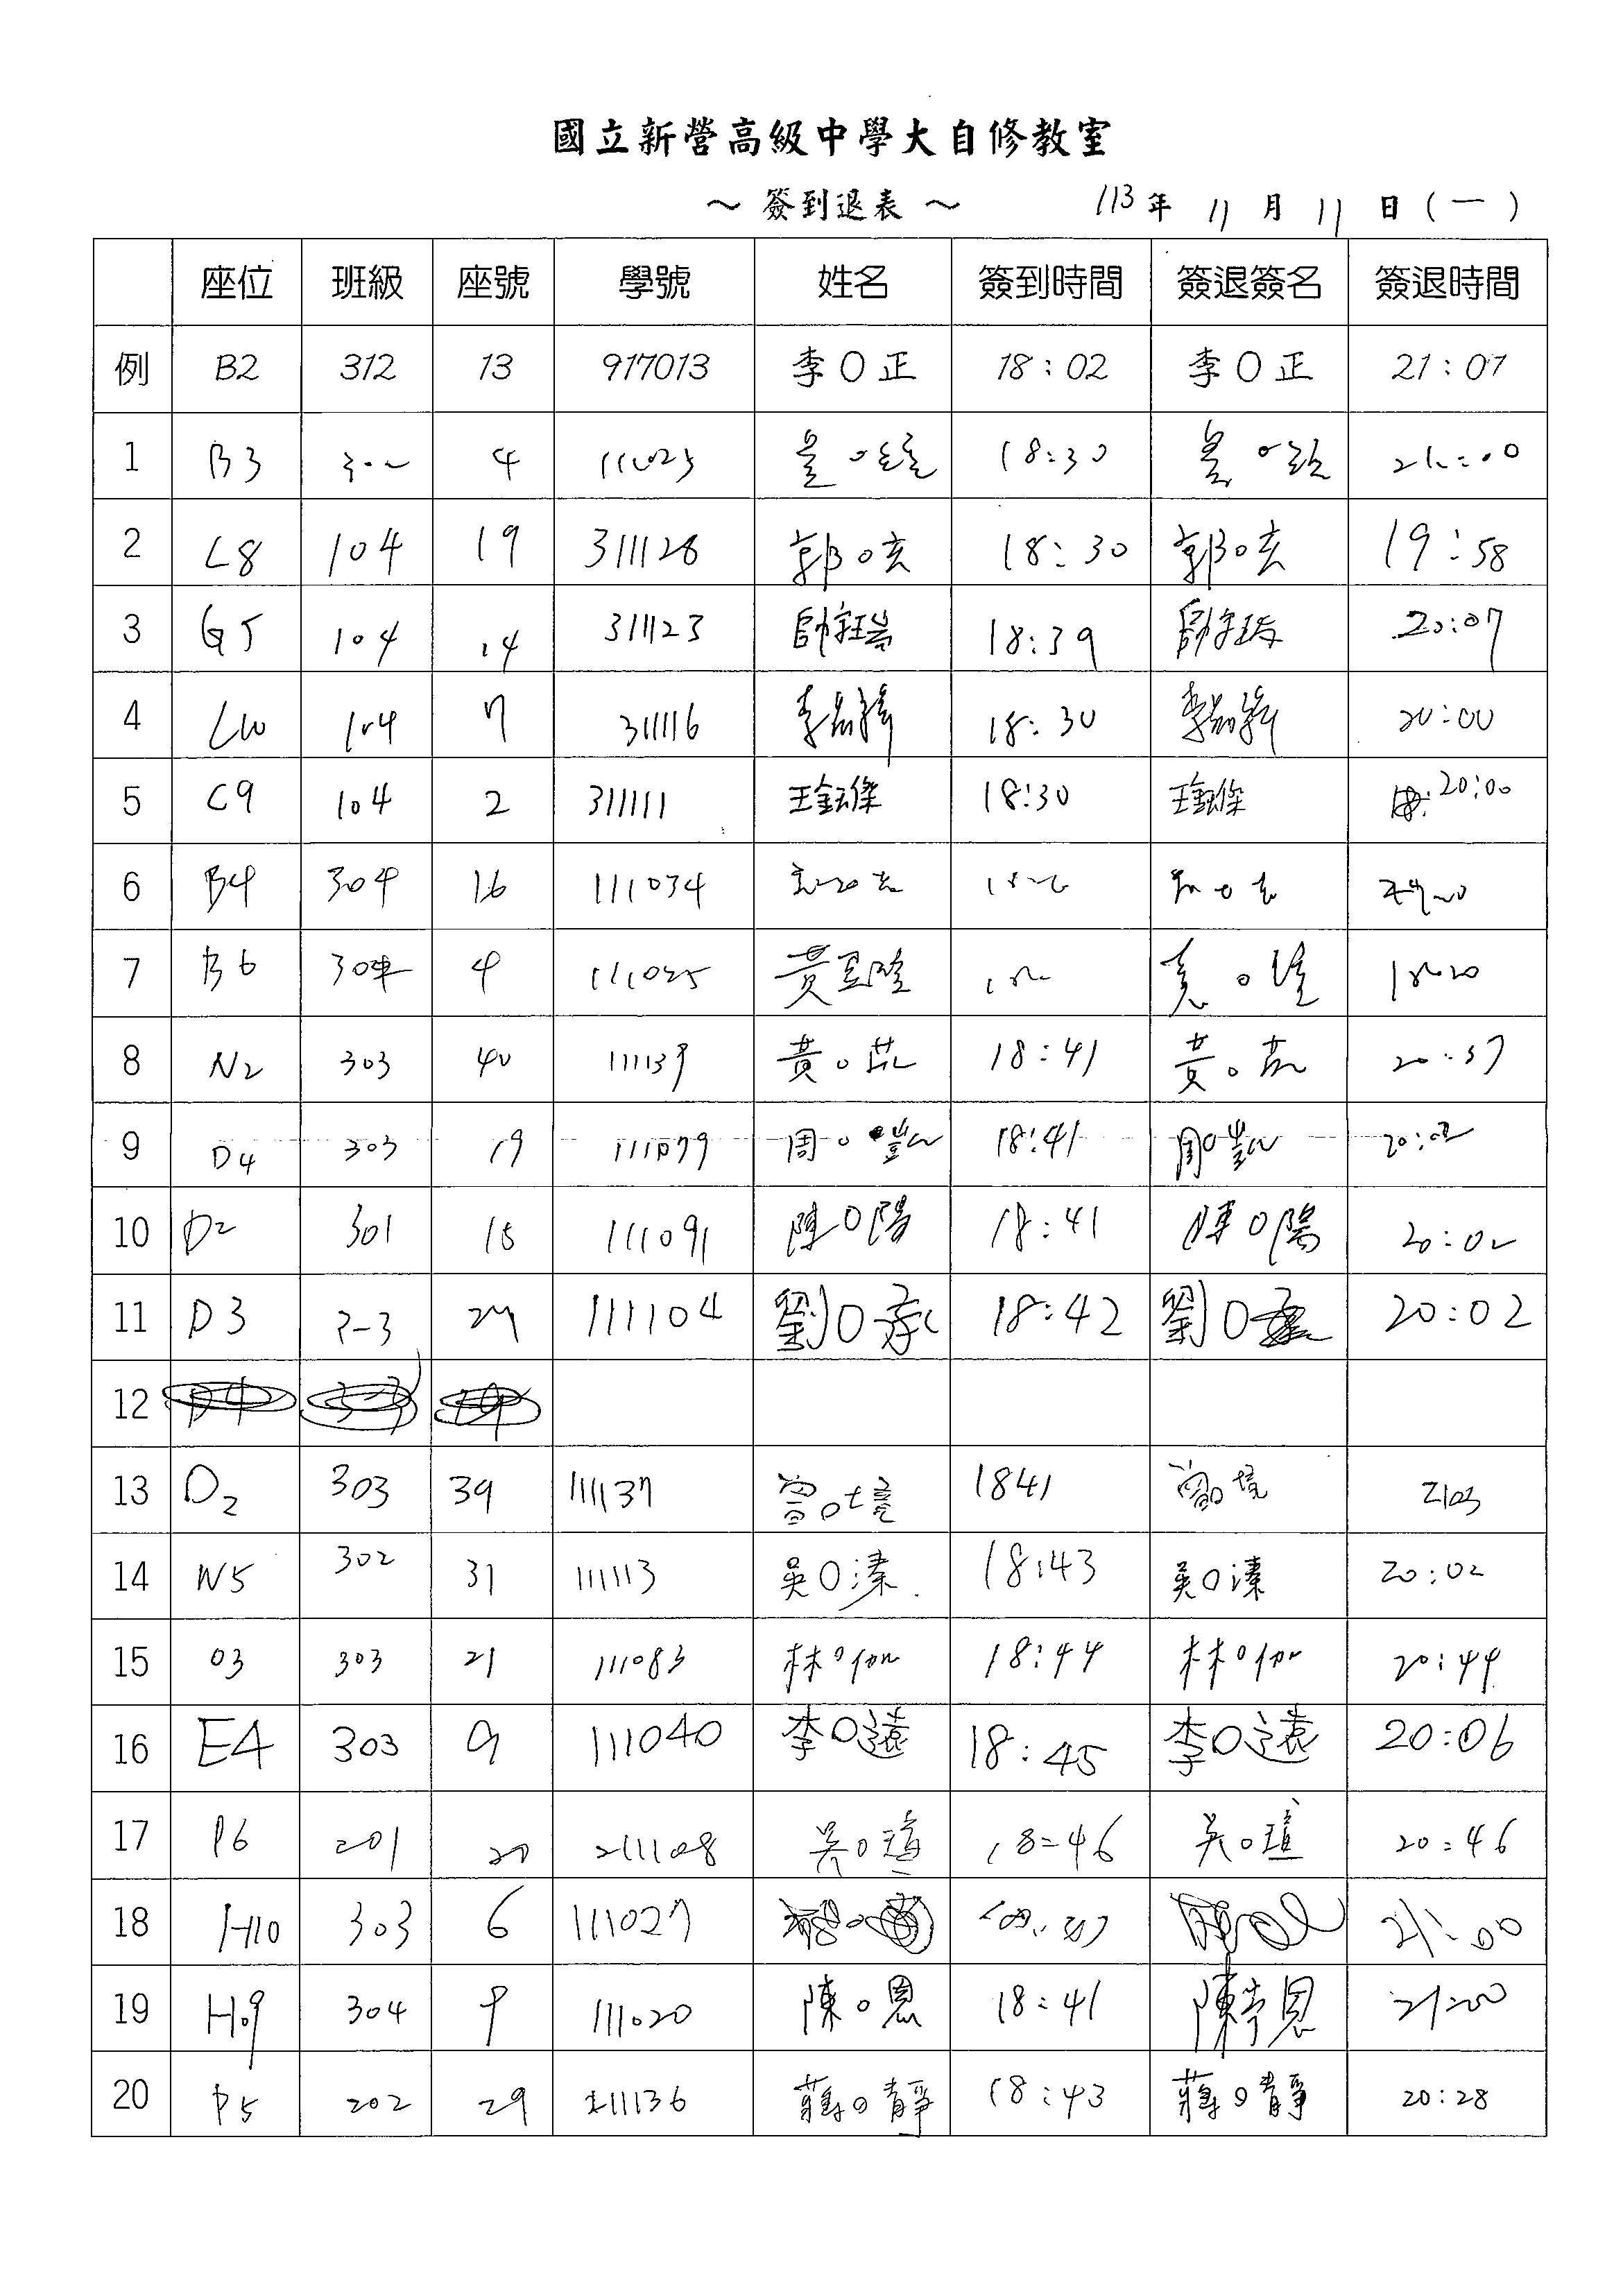 國立新營高級中學大自修教室
～ 簽到退表 ～ 113 年 11 月 11 日 ( 一 )
座位 班級 座號 學號 姓名 簽到時間 簽退簽名 簽退時間
例 B2 312 13 917013 李O正 18:02 李O正 21:07
1 B3 4 18:30
2 L8 104 19 311128 郭O玄 18:30 郭O玄 19:58
3 G5 104 14 311123 18:39 20:07
4 L10 104 7 311116 18:30 20:00
5 C9 104 2 311111 18:30 20:00
6 B4 304 16 111034
7 B6 304 4 黃
8 N2 303 40 111139 黃O 18:41 黃O 20:57
9 D4 303 19 111079 周O凱 18:41 周O凱 20:02
10 D2 301 18 111091 陳O陽 18:41 陳O陽 20:02
11 D3 111104 劉O承 18:42 劉O 20:02
12
13 D2 303 39 111137 曾O境 1841 曾O境 2103
14 N5 302 31 111113 吳O溱 18:43 吳O溱 20:02
15 03 303 21 111083 林O伽 18:44 林O伽 20:44
16 E4 303 9 111040 李O遠 18:45 李O遠 20:06
17 P6 201 20 211108 吳O瑄 18:46 吳O瑄 20:46
18 H10 303 6 111027 21:00
19 H9 304 9 111020 陳O恩 18:41 21:00
20 P5 202 29 211136 蔣O靜 18:43 蔣O靜 20:28